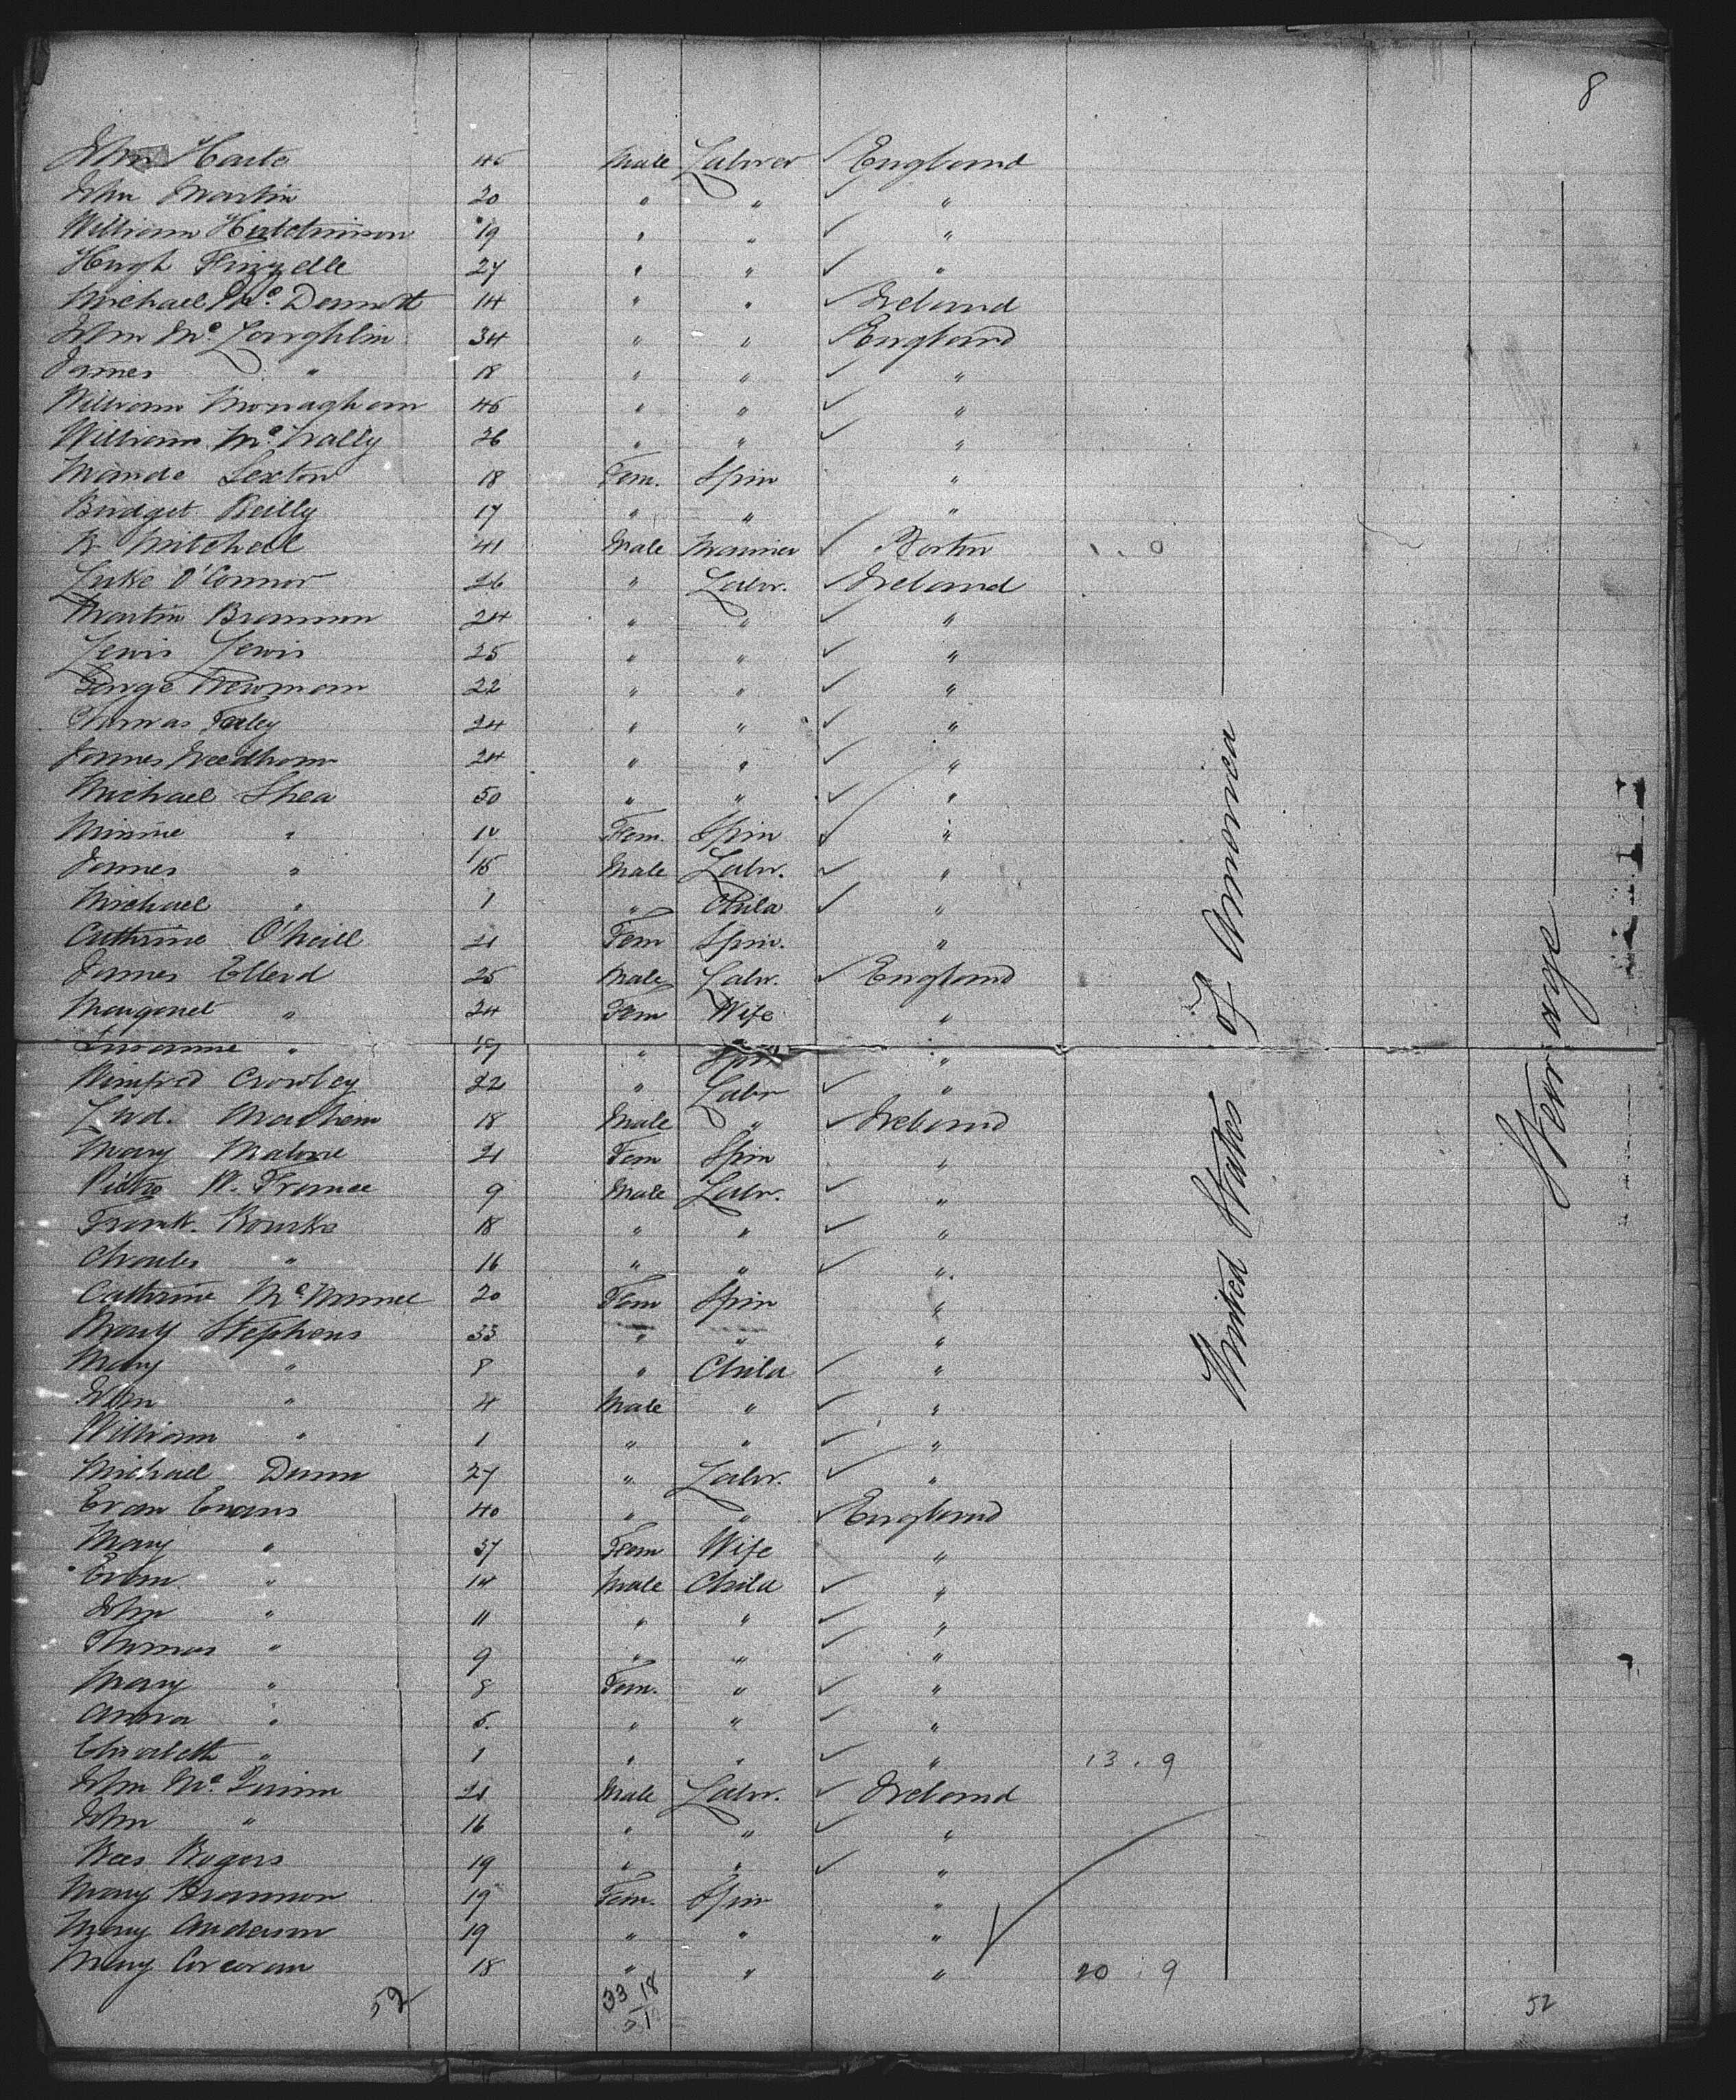 8
John Harte 45 Male Laborer ✓ England
John Martin 20 " " ✓ "
William Hutchinson 19 " " ✓ "
Hugh Finzelle 27 " " ✓ "
Michael Mc. Dermott 14 " " ✓ Ireland
John Mc. Loughlin 34 " " ✓ England
James " 18 " " ✓ "
William Monaghan 45 " " ✓ "
William Mc. Nally 26 " " ✓ "
Maude Sexton 18 Fem. Spin "
Bridget Reilly 17 " " "
R. Mitchell 41 Male Mariner ✓ Boston
Luke O'Connor 26 " Labr. ✓ Ireland
Martin Brannon 24 " " ✓ "
Lewis Lewis 25 " " ✓ "
George Newman 22 " " ✓ "
Thomas Foley 24 " " ✓ "
James Needham 24 " " ✓ "
Michael Shea 50 " " ✓ "
Minnie " Fem. Spin ✓ "
James " 15 Male Labr. ✓ "
Michael " 1 " Child ✓ "
Cathrine O'Neill 21 Fem Spin. "
James Ellerd 25 Male Labr. ✓ England
Margaret " 24 Fem Wife "
" 19 " Spin "
Winifred Crowley 22 " Labr ✓ "
18 Male " ✓ Ireland
Mary Malone 21 Fem Spin "
W. France 9 Male Labr. ✓ "
Frank. Rourke 18 " " ✓ "
Charles " 16 " " ✓ "
Cathrine Mc. 20 Fem Spin "
Mary Stephens 33 " " "
Mary " 8 " Child ✓ "
John " 4 Male " ✓ "
William " 1 " " ✓ "
Michael Dunn 27 " Labr. ✓ "
Evan Evans 40 " " ✓ England
Mary " 37 Fem Wife "
Evan " 14 Male Child ✓ "
John " 11 " " ✓ "
Thomas " 9 " " ✓ "
Mary " 8 Fem. " ✓ "
Anna " 5. " " ✓ "
Elizabeth " 1 " " ✓ " 13.9
John Mc. Quinn 21 Male Labr. ✓ Ireland
John " 16 " " ✓ "
Rees Rogers 19 " " ✓ "
Mary Brannon 19 Fem. Spin "
Mary Anderson 19 " " "
Mary Corcoran 18 " " " 20.9
52 33 18 52
51
United States of America
Steerage